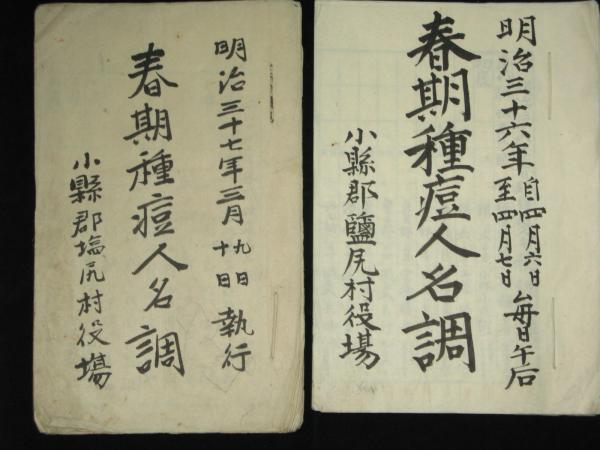 明治三十七年三月九日十日執行
春期種痘人名調
小縣郡塩尻村役場
明治三十六年自四月六日至四月七日毎日午后
春期種痘人名調
小縣郡鹽尻村役場